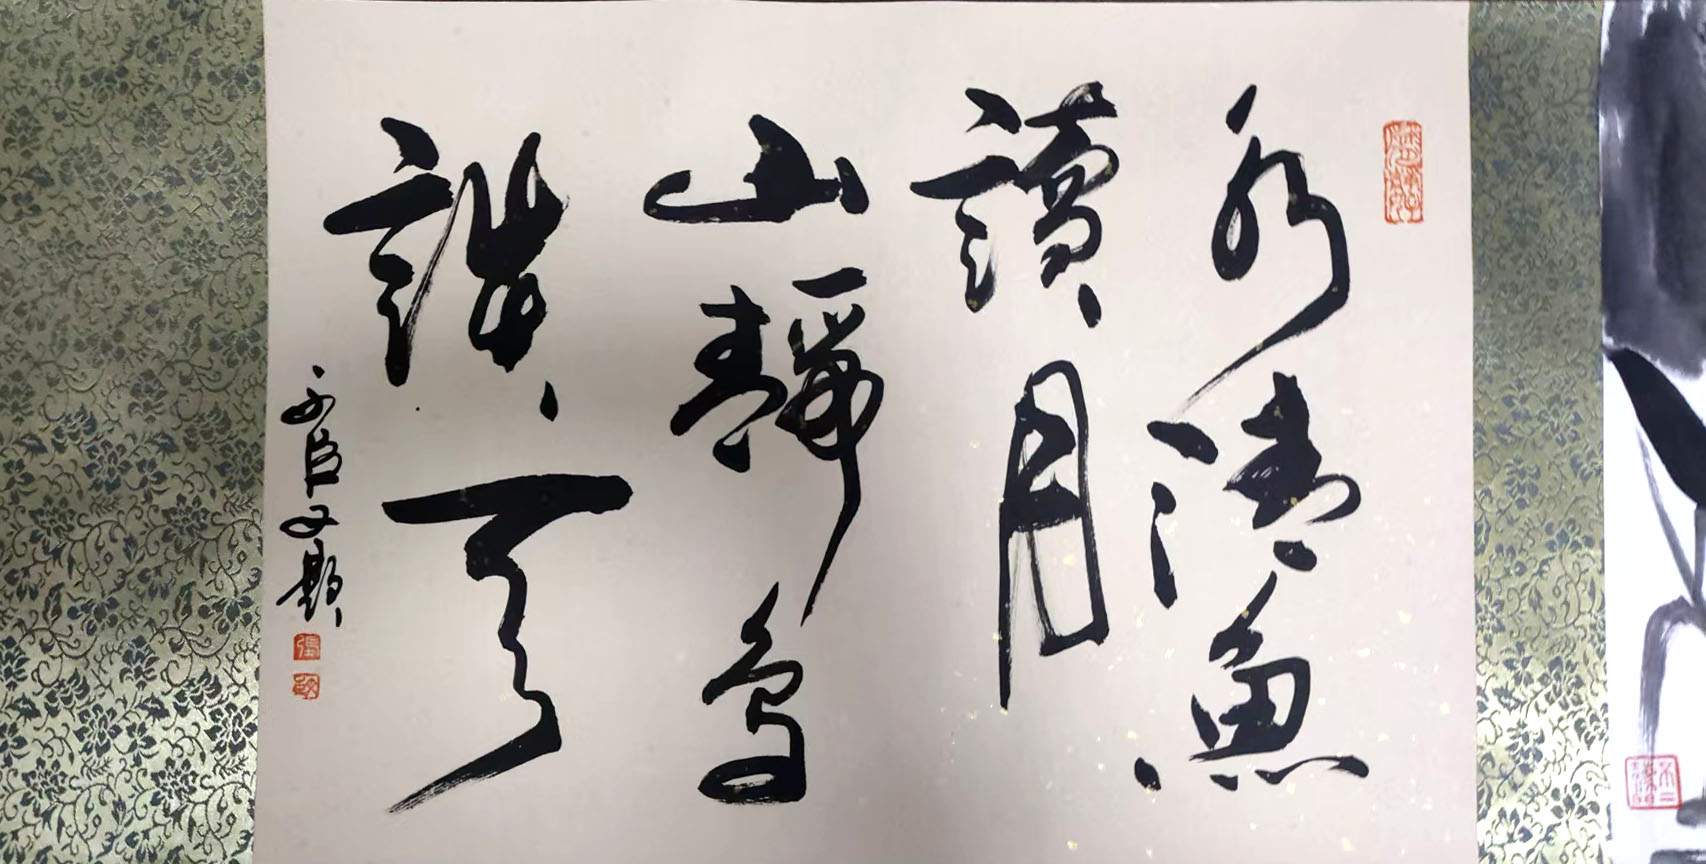 水清魚
讀月
山靜鳥
談天